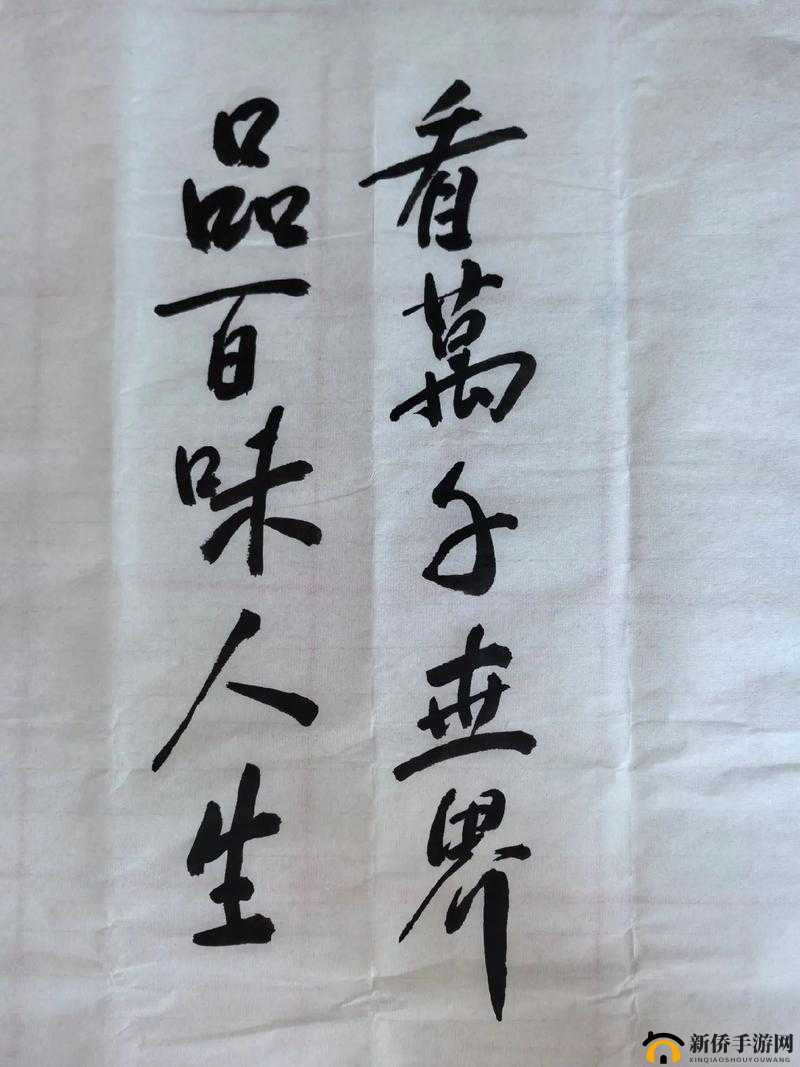 看萬千世界
品百味人生
新侨手游网
XINQIAOSHOUYOUWANG